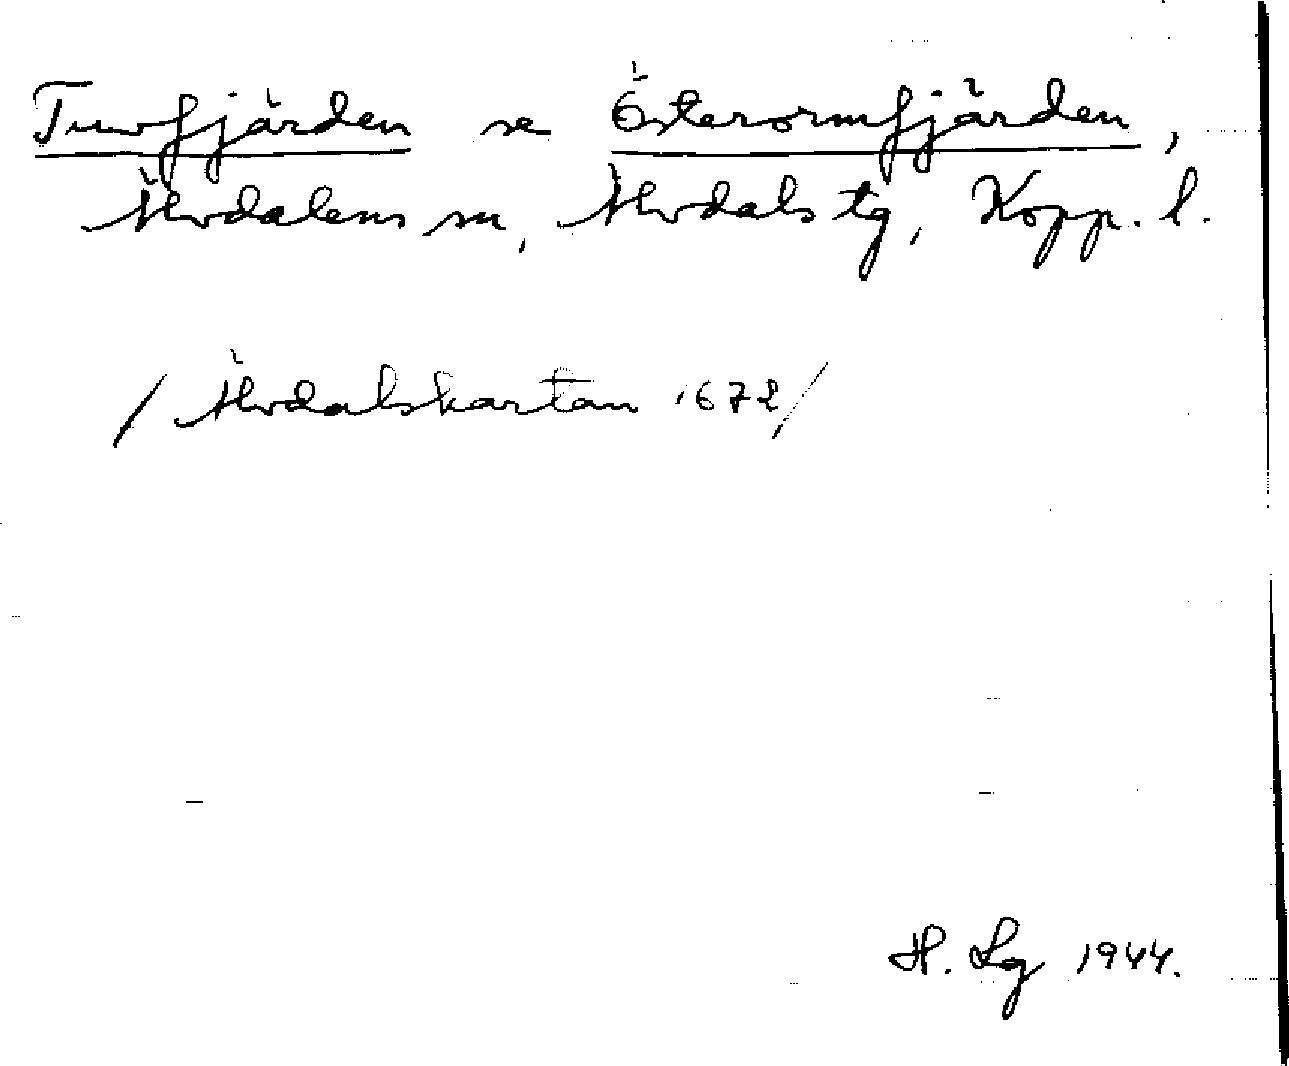 Tuvfjärden se Österormfjärden,
Älvdalens sn, Älvdals tg, Kopp. l.
/ Älvdalskartan 1672 /
H. Lg 1944.